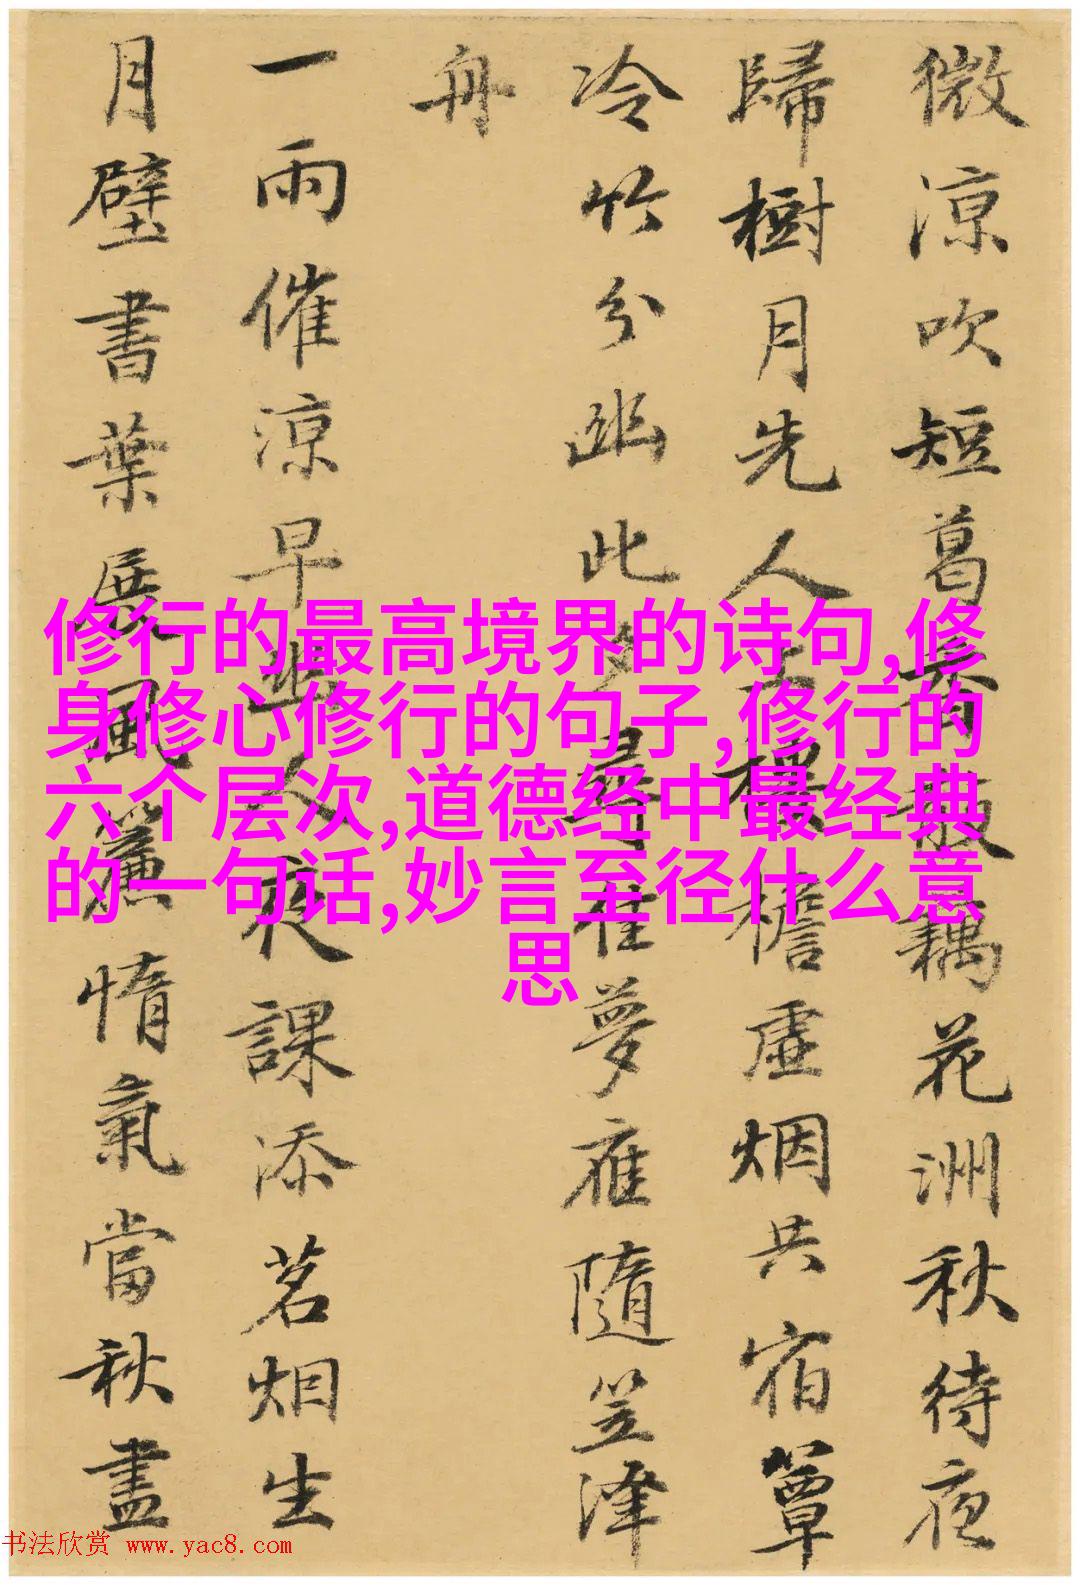 微涼吹短葛香散藕花洲秋待夜
歸樹月先人上樓檐虛烟共宿簟
冷竹分幽此夕尋佳夢應隨笠澤
舟
一雨催涼早幽人夜課添茗烟生
月壁書葉展風簾惰氣當秋盡
修行的最高境界的诗句,修
身修心修行的句子,修行的
六个层次,道德经中最经典
的一句话,妙言至径什么意
思
书法欣赏 www.yac8.com